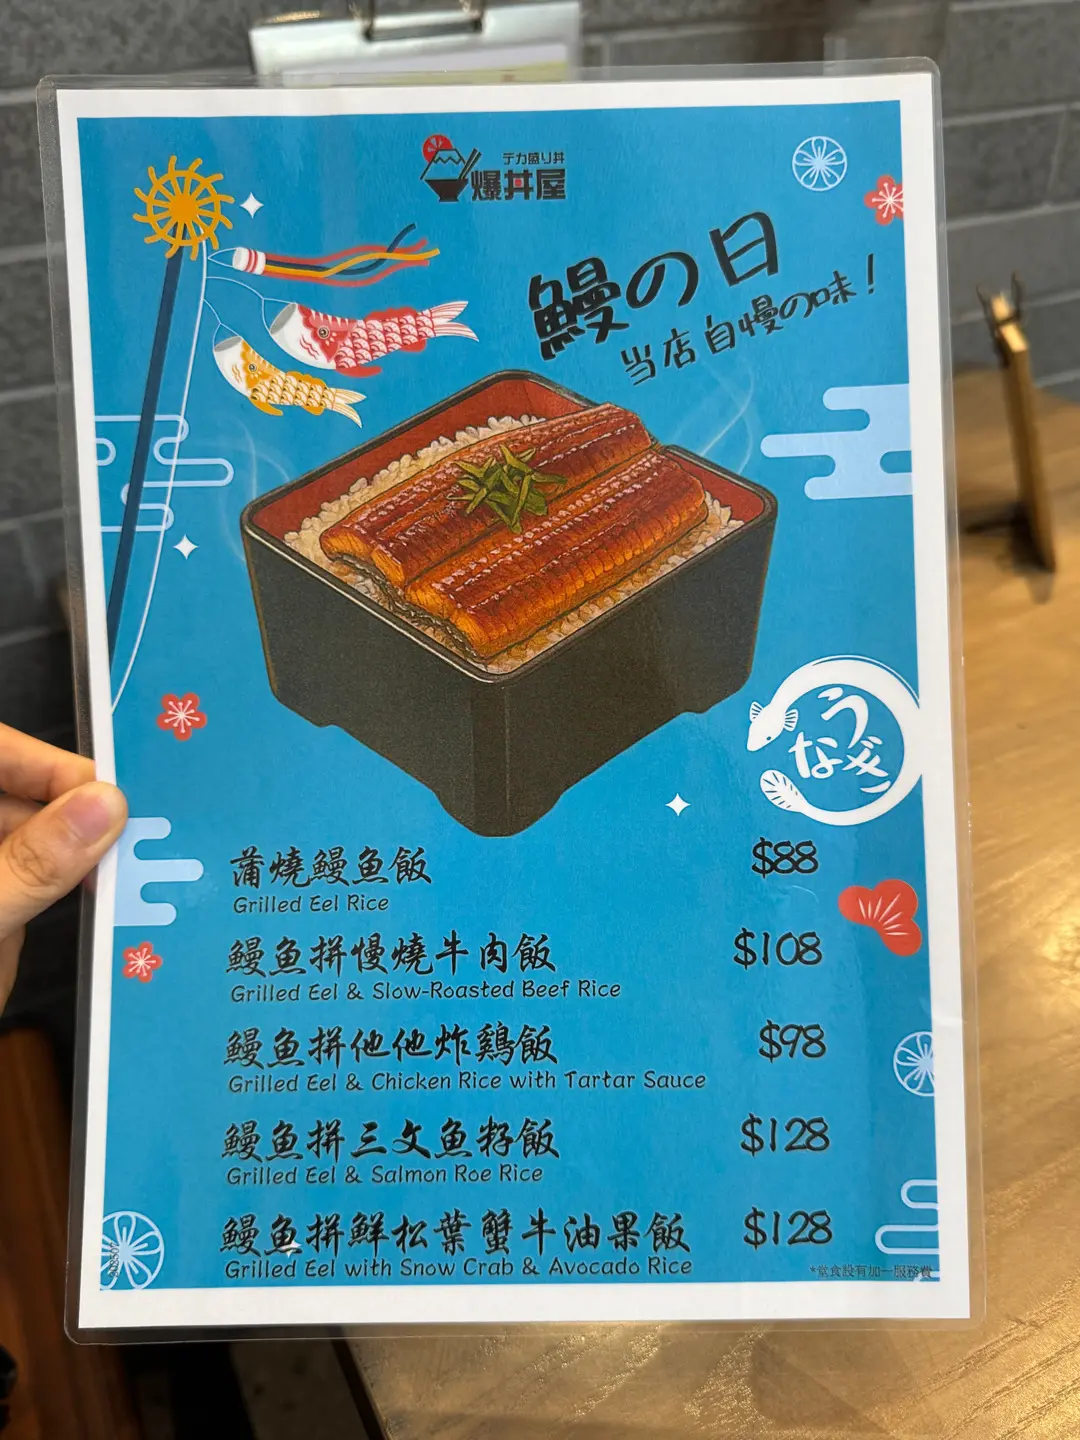 デカ盛り丼
爆丼屋
鰻の日
当店自慢の味！
うなぎ
蒲燒鰻魚飯 $88
Grilled Eel Rice
鰻魚拼慢燒牛肉飯 $108
Grilled Eel & Slow-Roasted Beef Rice
鰻魚拼他他炸鷄飯 $98
Grilled Eel & Chicken Rice with Tartar Sauce
鰻魚拼三文魚籽飯 $128
Grilled Eel & Salmon Roe Rice
鰻魚拼鮮松葉蟹牛油果飯 $128
Grilled Eel with Snow Crab & Avocado Rice
*堂食設有加一服務費